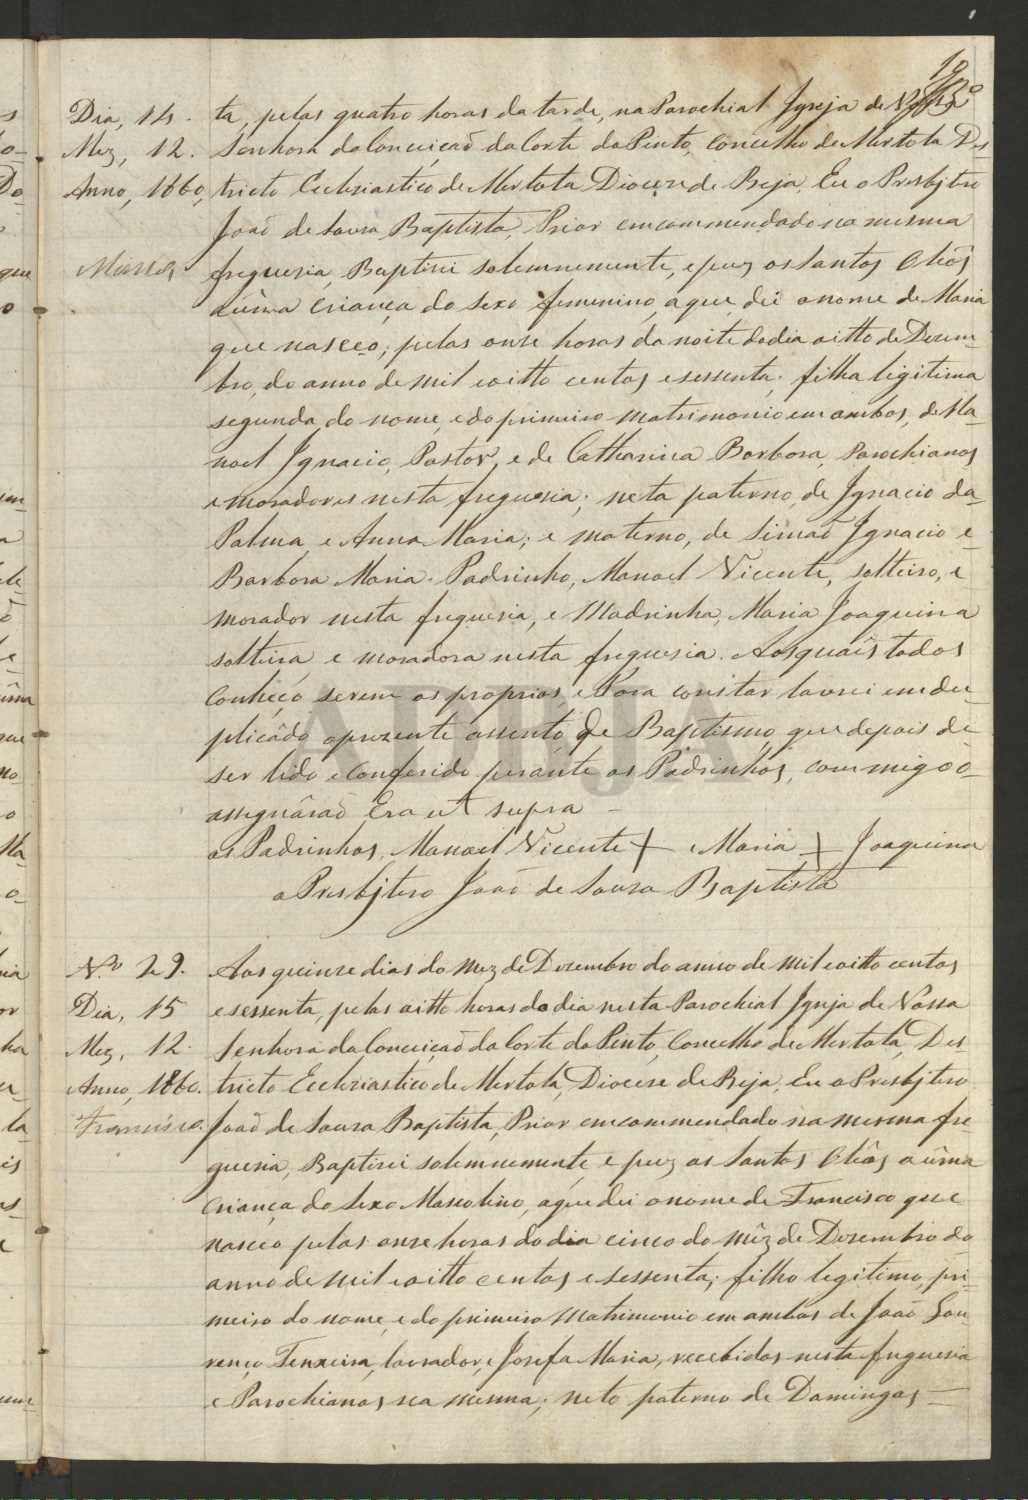 Dia, 14. ta, pelas quatro horas da tarde, na Parochial Igreja de Nossa
Mez, 12. Senhora da Conceição da Corte do Pinto, Concelho de Mertola Des
Anno, 1860, tricto Ecclesiastico de Mertola Diocese de Beja, Eu o Presbjtero
João de Souza Baptista, Prior emcommendado na mesma
Maria freguesia, Baptisei solemnemente, e puz os Santos Oleos
a uma criança do sexo femenino, a que dei o nome de Maria
que nasceo, pelas onze horas da noite do dia oitto de Dezem-
bro, do anno de mil e oitto centos, e sessenta; filha legitima
segunda do nome, e do primeiro matrimonio em ambos, de Ma-
noel Ignacio, Pastor, e de Catharina Barbora, Parochianos
e moradores nesta freguesia; neta paterno, de Ignacio da-
Palma e Anna Maria; e materno, de Simaõ Ignacio e-
Barbora Maria. Padrinho, Manoel Vicente, solteiro, e
morador nesta freguesia, e Madrinha, Maria Joaquina
solteira e moradora nesta freguesia. Aos quaîs todos
conheço serem os proprios, e Para constar lavrei em du-
plicádo o prezente assento de Baptismo, que depois de
ser lido e conferido perante os Padrinhos, commigo o-
assignárão Era ut supra -
os Padrinhos, Manoel Vicente + Maria + Joaquina
o Presbjtero João de Souza Baptista
N.º 29. Aos quinze dias do Mez de Dezembro do anno de mil e oitto centos
Dia, 15 e sessenta, pelas oitto horas do dia nesta Parochial Igreja de Nossa
Mez, 12. Senhora da Conceição da Corte do Pinto, Concelho de Mertola, Des-
Anno, 1860. tricto Ecclesiastico de Mertola, Diocese de Beja, Eu o Presbjtero
Francisco. João de Souza Baptista, Prior emcommendado na mesma fre-
guesia, Baptisei solemnemente, e puz os Santos Oleôs a uma
criança do sexo Mascolino, a que dei o nome de Francisco que
nasceo pelas onze horas do dia cinco do mêz de Dezembro do
anno de mil e oitto centos, e sessenta; filho legitimo, pri-
meiro do nome, e do primeiro matrimonio em ambos de João Lou
renço Teixeira, lavrador, e Josefa Maria, recebidos nesta freguesia
e Parochianos na mesma; neto paterno de Domingos
ADBJA